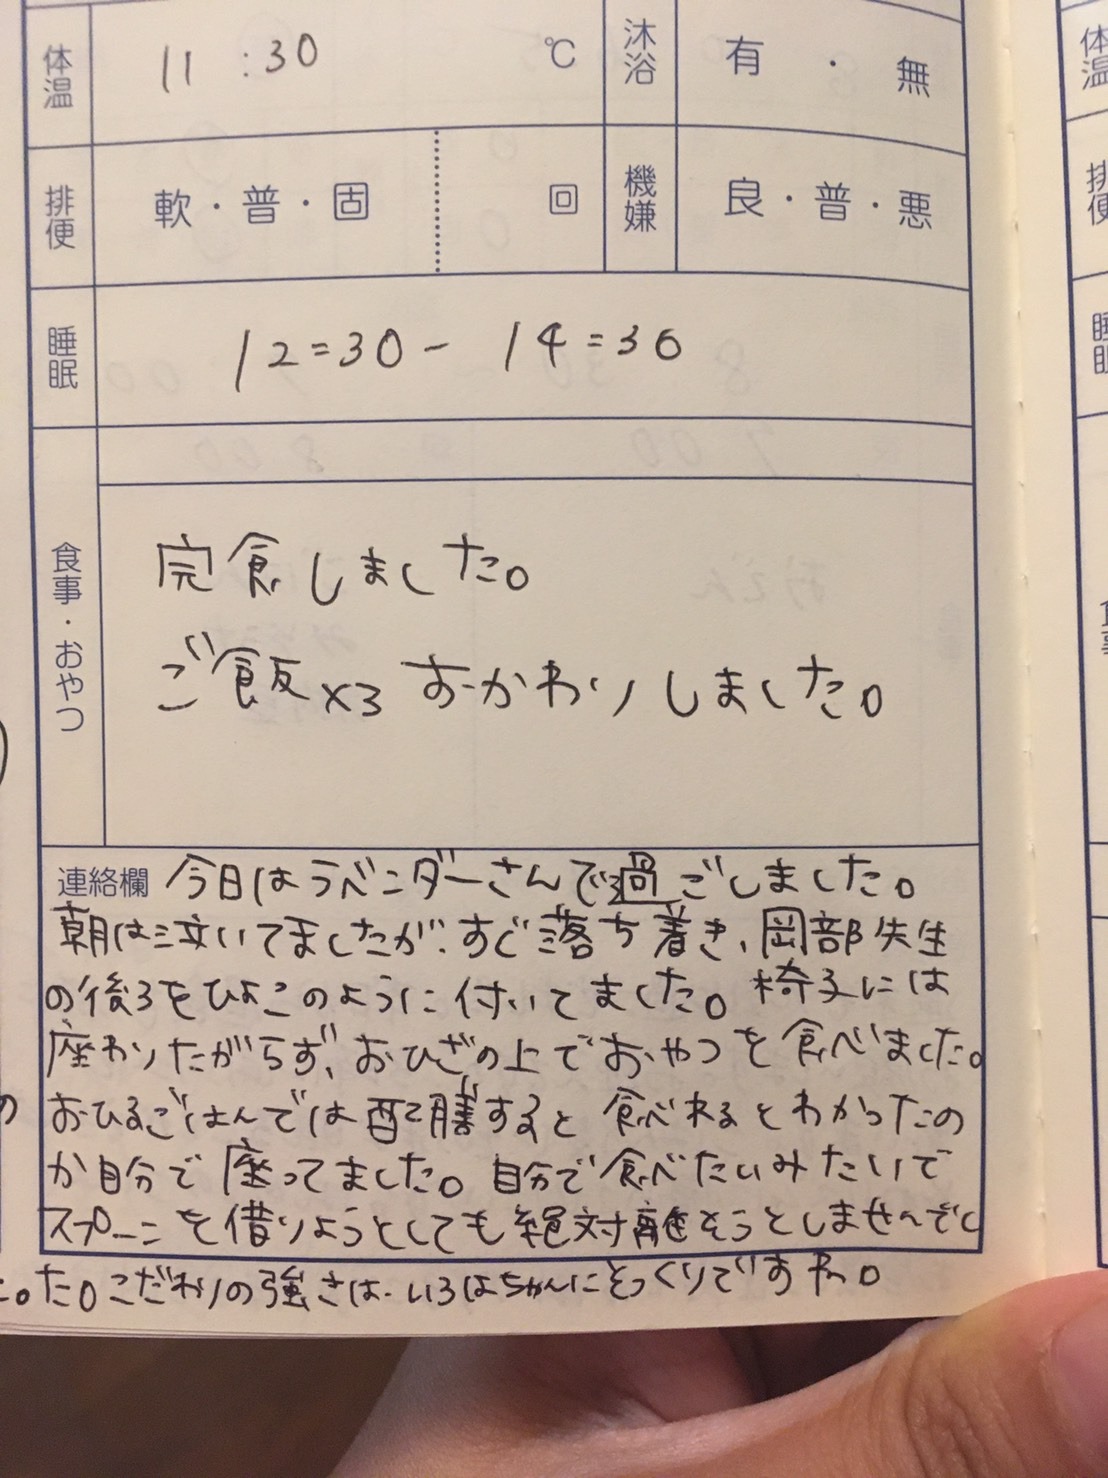 体温 11:30 ℃ 沐浴 有・無
排便 軟・普・固 回 機嫌 良・普・悪
睡眠 12=30- 14=30
食事・おやつ
完食しました。
ご飯×3 おかわりしました。
連絡欄 今日はラベンダーさんで過ごしました。
朝は泣いてましたが、すぐ落ち着き、岡部先生
の後ろをひよこのように付いてました。椅子には
座わりたがらず、おひざの上でおやつを食べました。
おひるごはんでは配膳すると食べれるとわかったの
か自分で座ってました。自分で食べたいみたいで
スプーンを借りようとしても絶対離そうとしませんでし
た。こだわりの強さは、いろはちゃんにそっくりですね。
体温
排便
睡眠
食事